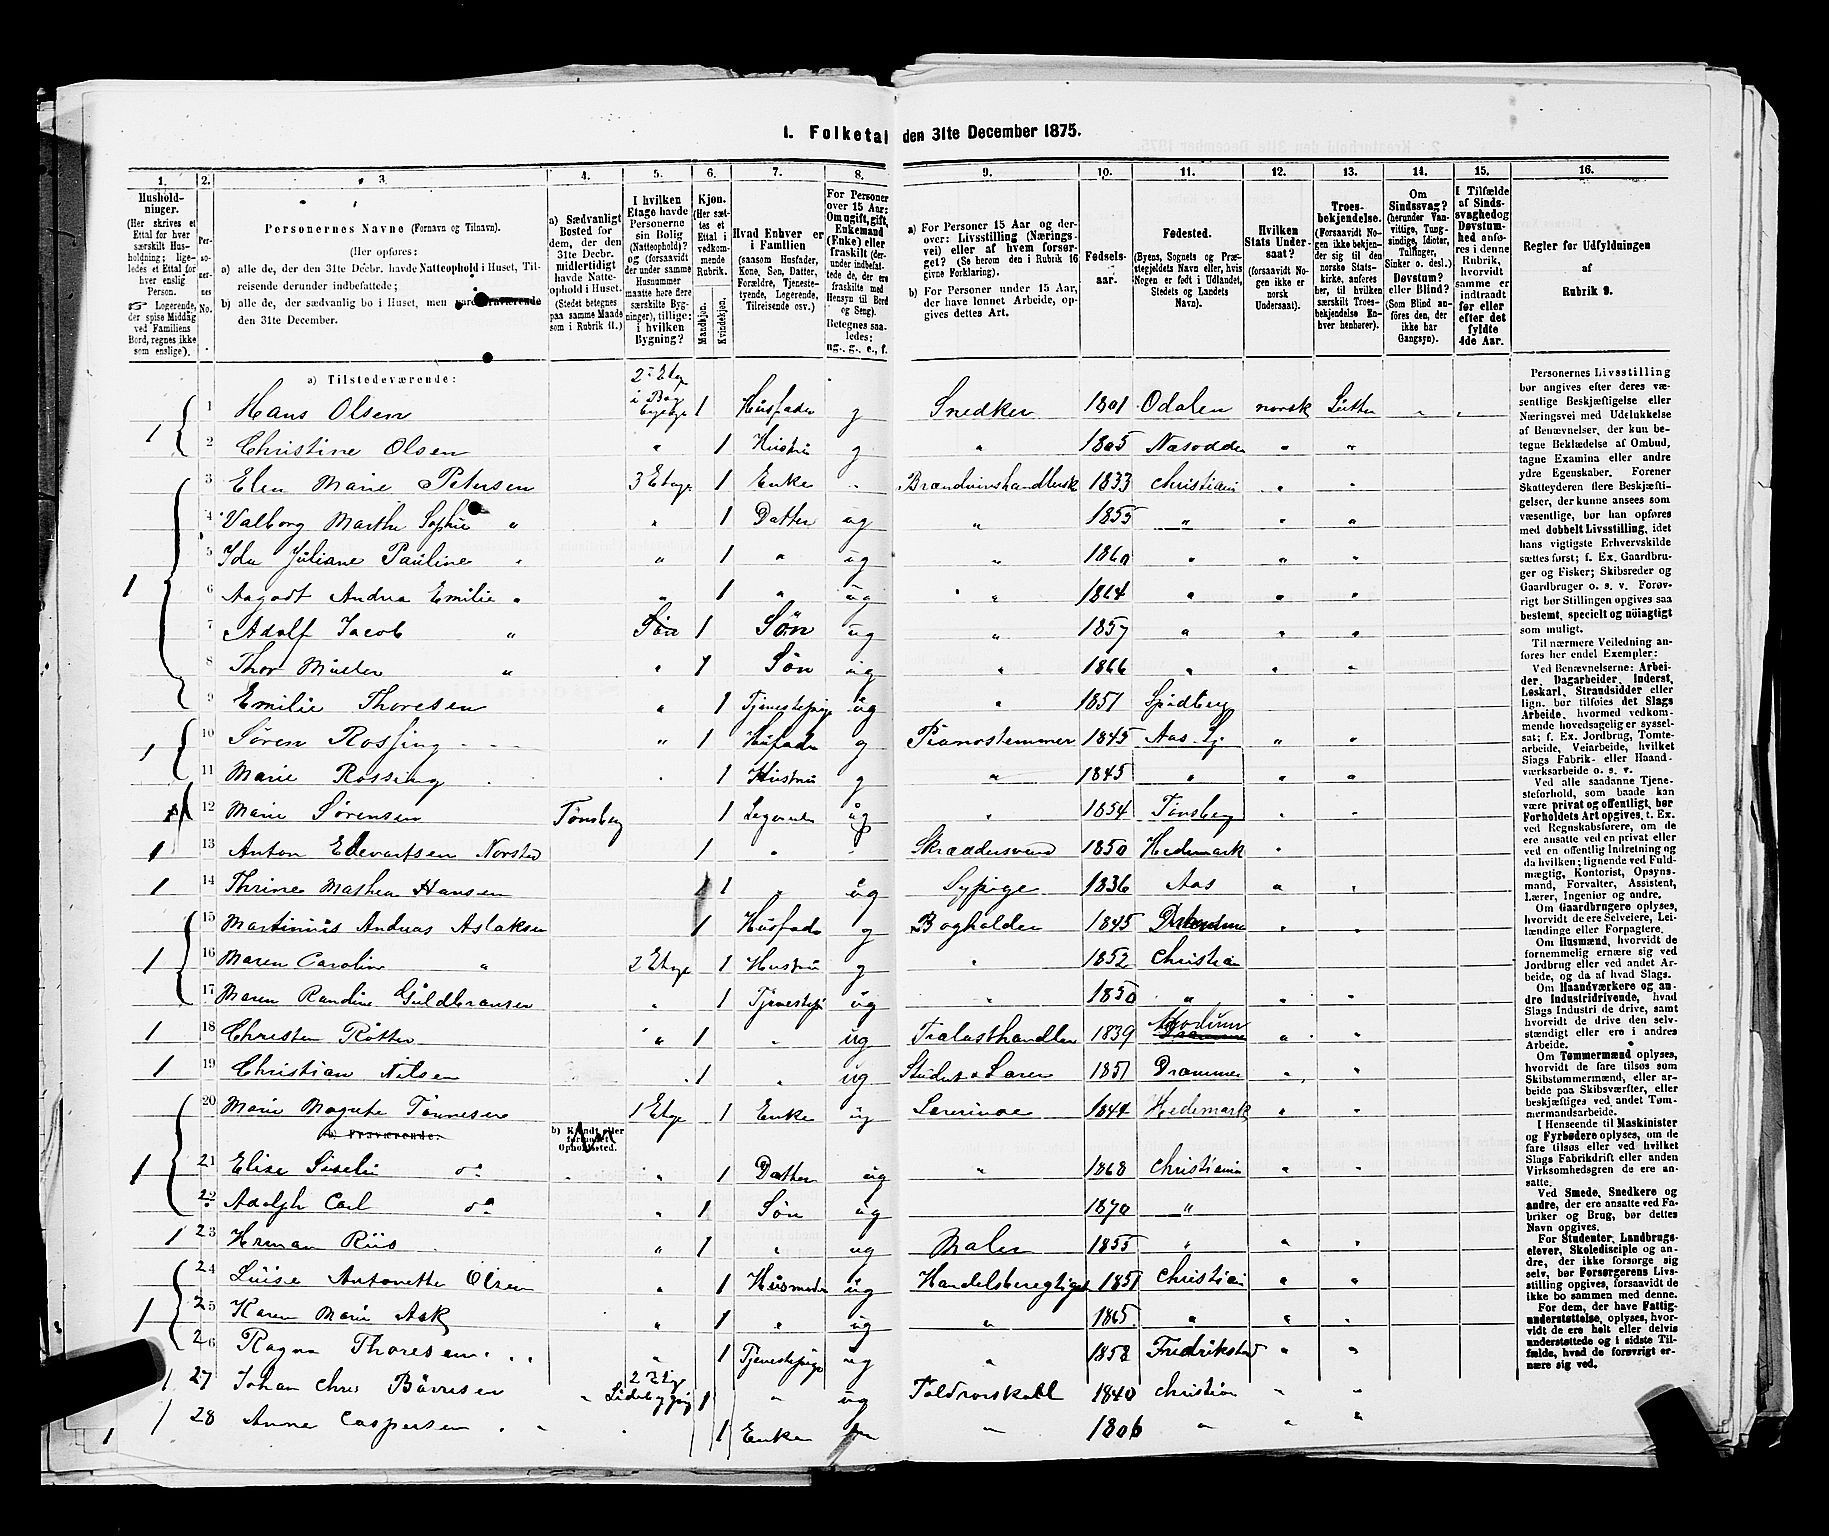 1. Folketal den 31te December 1875.
1. 2. 3. 4. 5. 6. 7. 8. 9. 10. 11. 12. 13. 14. 15. 16.
Husholdninger.
(Her skrives et Ettal for hver særskilt Husholdning; ligeledes et Ettal for hver enslig Person.
☞ Logerende, der spise Middag ved Familiens Bord, regnes ikke som enslige).
Personernes No.
Personernes Navne (Fornavn og Tilnavn).
(Her opføres:
a) alle de, der den 31te Decbr. havde Natteophold i Huset, Tilreisende derunder indbefattede;
b) alle de, der sædvanlig bo i Huset, men vare fraværende den 31te December.
a) Sædvanligt Bosted for dem, der den 31te Decbr. midlertidigt havde Natteophold i Huset.
(Stedet betegnes paa samme Maade som i Rubrik 11.)
I hvilken Etage havde Personerne sin Bolig (Natteophold)? og (forsaavidt der under samme Husnummer maatte høre flere særskilte Bygninger), tillige: i hvilken Bygning?
Kjøn. (Her sættes et Ettal i vedkommende Rubrik.
Mandkjøn. Kvindekjøn.
Hvad Enhver er i Familien (saasom Husfader, Kone, Søn, Datter, Forældre, Tjenestetyende, Logerende, Tilreisende osv.)
For Personer over 15 Aar: Om ugift, gift, Enkemand (Enke) eller fraskilt (derunder indbefattede de, der ere fraskilte med Hensyn til Bord og Seng).
Betegnes saaledes: ug., g., e., f.
a) For Personer 15 Aar og derover: Livsstilling (Næringsvei) eller af hvem forsørget? (Se herom den i Rubrik 16 givne Forklaring).
b) For Personer under 15 Aar, der have lønnet Arbeide, opgives dettes Art.
Fødselsaar.
Fødested.
(Byens, Sognets og Præstegjeldets Navn eller, hvis Nogen er født i Udlandet, Stedets og Landets Navn).
Hvilken Stats Undersaat?
(forsaavidt Nogen ikke er norsk Undersaat).
Troesbekjendelse.
(Forsaavidt Nogen ikke bekjender sig til den norske Statskirke, anføres her, til hvilken særskilt Troesbekjendelse Enhver henhører).
Om Sindssvag? (herunder Vanvittige, Tungsindige, Idioter, Sinker o. desl.) Døvstum? eller Blind?
(Som Blind anføres den, der ikke har Gangsyn).
I Tilfælde af Sindssvaghed og Døvstumhed anføres i denne Rubrik, hvorvidt samme er indtraadt før eller efter det fyldte 4de Aar.
Regler for Udfyldningen af Rubrik 9.
a) Tilstedeværende:
2 Etage i Bag
1 1 Hans Olsen 1 Husfader g Snedker 1801 Odalen norsk Luther
2 Christine Olsen " 1 Hustru g " 1805 Næsodden " "
3 Elen Marie Petersen 3 Etage 1 Enke Brændvinshandlerske 1833 Christiania " "
4 Valborg Marthe Sophie " " 1 Datter ug " 1855 " " "
5 Ida Juliane Pauline " " 1 " ug " 1860 " " "
1 6 Aagodt Andrea Emilie " " 1 " ug " 1864 " " "
7 Adolf Jacob " Søn 1 Søn ug " 1857 " " "
8 Thor Müller " " 1 Søn ug " 1866 " " "
9 Emilie Thoresen " 1 Tjenestepige ug " 1851 Spydberg
1 10 Søren Rossing " 1 Husfader g Pianostemmer 1845 Aas " "
11 Marie Rossing 1 Hustru g " 1845 " " "
12 Marie Sørensen Tønsberg 1 Logerende ug " 1854 Tønsberg " "
1 13 Anton Edevartsen Norstad 1 " Skræddersvend 1850 Hedemark "
1 14 Thrine Mathea Hansen 1 " ug Sypige 1836 Aas " "
15 Martinius Andreas Aslaksen 1 Husfader g Bogholder 1845 Drammen " "
1 16 Maren Caroline " 2 Etage 1 Hustru g " 1852 Christian
17 Maren Randine Guldbransen " 1 Tjenestepi ug " 1850 " " "
1 18 Christen Rotter " 1 " ug Trælasthandler 1839 Modum " "
1 19 Christian Nilsen 1 " ug Student & Lærer 1851 Drammen " "
20 Marie Magrete Tønnesen 1 Etage 1 Enke ug Lærerinde 1844 Hedemark " "
b) Fraværende: b) Kjendt eller formodet Opholdssted.
1 21 Elise Sivelin do " 1 Datter ug " 1868 Christiania " "
22 Adolph Carl do " 1 Søn ug 1870 "
1 23 Herman Riis " 1 " ug Maler 1855 " " "
24 Luise Antonette Olsen " 1 Husmoder ug Handelsberegtiget 1851 Christian " "
1 25 Karen Marie Ask " 1 " ug " 1865 " " "
26 Ragna Thoresen " 1 Tjenestepige ug " 1858 Fredrikstad " "
1 27 Johan Chr. Børresen " 2 Etg Sidebygnig 1 " ug Toldrorskall 1840 Christian " "
1 28 Anne Caspersen 1 Enke " 1806 " " "
1
Personernes Livsstilling bør angives efter deres væsentlige Beskjæftigelse eller Næringsvei med Udelukkelse af Benævnelser, der kun betegne Beklædelse af Ombud, tagne Examina eller andre ydre Egenskaber. Forener Skatteyderen flere Beskjæftigelser, der kunne ansees som væsentlige, bør han opføres med dobbelt Livsstilling, idet hans vigtigste Erhvervskilde sættes først; f. Ex. Gaardbruger og Fisker; Skibsreder og Gaardbruger o. s. v. Forøvrigt bør Stillingen opgives saa bestemt, specielt og nøiagtigt som muligt.
Til nærmere Veiledning anføres her endel Exempler:
Ved Benævnelserne: Arbeider, Dagarbeider, Inderst, Løskarl, Strandsidder eller lign. bør tilføies det Slags Arbeide, hvormed vedkommende hovedsagelig er sysselsat; f. Ex. Jordbrug, Tomtearbeide, Veiarbeide, hvilket Slags Fabrik- eller Haandværksarbeide o. s. v.
Ved alle saadanne Tjenesteforhold, som baade kan være privat og offentligt, bør Forholdets Art opgives, t. Ex. ved Regnskabsførere, om de ere ansatte ved en privat eller ved en offentlig Indretning og da hvilken; lignende ved Fuldmægtig, Kontorist, Opsynsmand, Forvalter, Assistent, Lærer, Ingeniør og andre.
Om Gaardbrugere oplyses, hvorvidt de ere Selveiere, Leilændinge eller Forpagtere.
Om Husmænd, hvorvidt de fornemmelig ernære sig ved Jordbrug eller ved andet Arbeide, og da af hvad Slags.
Om Haandværkere og andre Industridrivende, hvad Slags Industri de drive, samt hvorvidt de drive den selvstændigt eller ere i andres Arbeide.
Om Tømmermænd oplyses, hvorvidt de fare tilsøs som Skibstømmermænd, eller arbeide paa Skibsværfter, eller beskjæftiges ved andet Tømmermandsarbeide.
I Henseende til Maskinister og Fyrbødere oplyses, om de fare tilsøs eller ved hvilket Slags Fabrikdrift eller anden Virksomhedsgren de ere ansatte.
Ved Smede, Snedkere og andre, der ere ansatte ved Fabriker og Brug, bør dettes Navn opgives.
For Studenter, Landbrugselever, Skoledisciple og andre, der ikke forsørge sig selv, bør Forsørgerens Livsstilling opgives, forsaavidt de ikke bo sammen med denne.
For dem, der have Fattigunderstøttelse, oplyses, hvorvidt de ere helt eller delvis understøttede og i sidste Tilfælde, hvad de forøvrigt ernære sig ved.